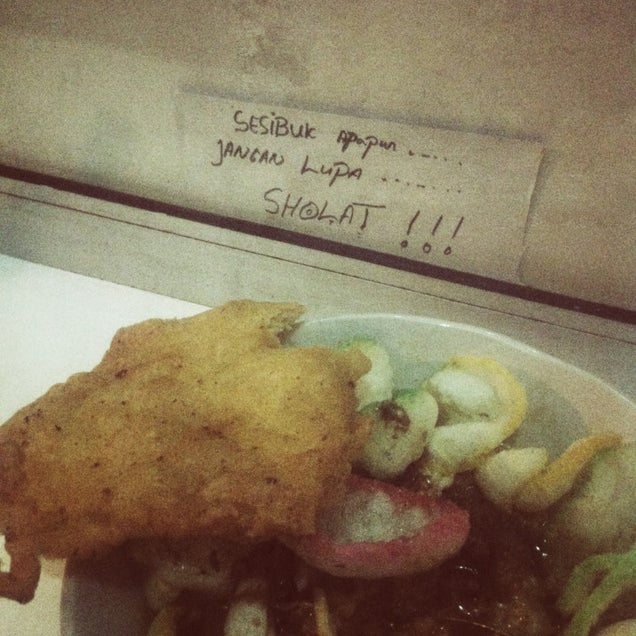 SESIBUK APAPUN ......
JANGAN LUPA ........
SHOLAT !!!